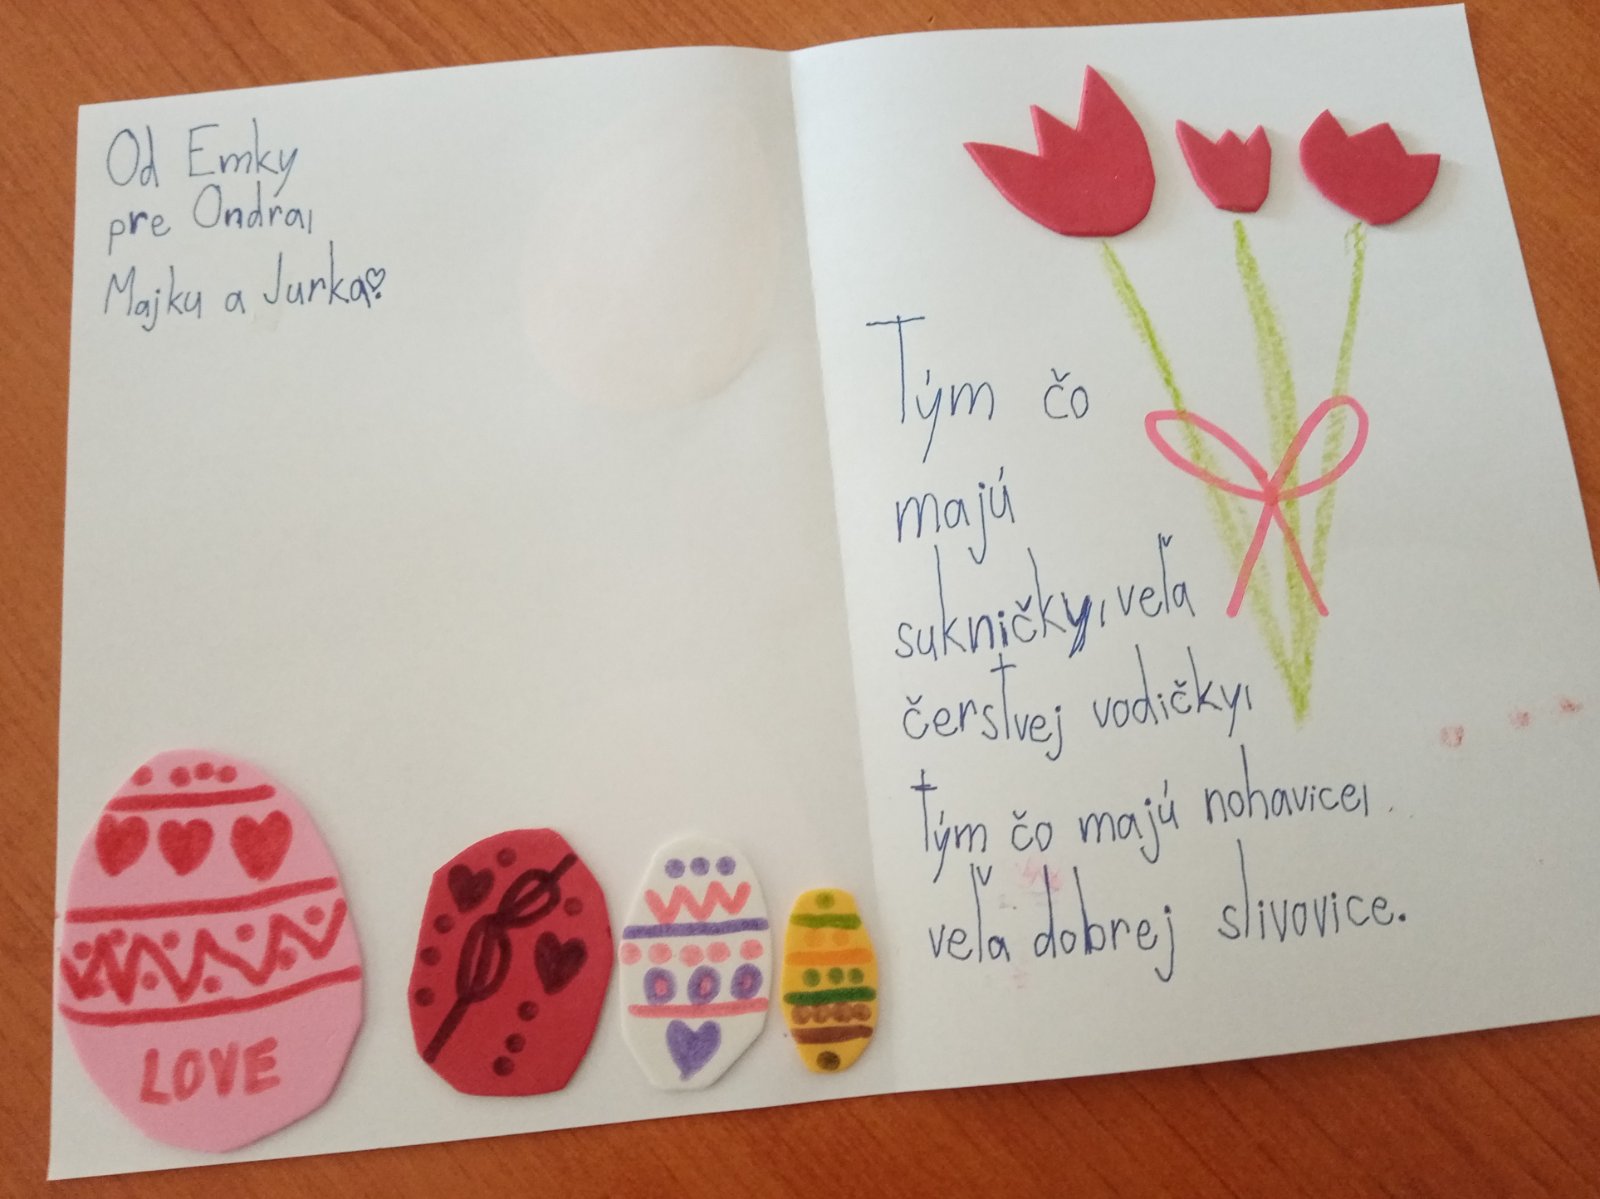 Od Emky
pre Ondra,
Majku a Jurka!
Tým čo
majú
sukničky, veľa
čerstvej vodičky,
tým čo majú nohavice,
veľa dobrej slivovice.
LOVE